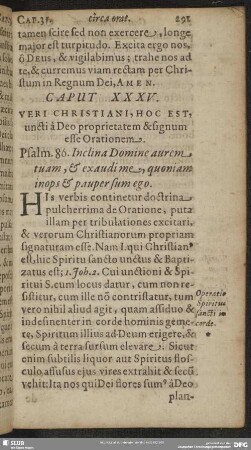 CAP.35. circa orat. 291
tamen scire sed non exercere, longe
major est turpitudo. Excita ergo nos,
ô DEUS, & vigilabimus; trahe nos ad
te, & curremus viam rectam per Chri-
stum in Regnum Dei, AMEN.
CAPUT XXXV.
VERI CHRISTIANI, HOC EST,
uncti à Deo proprietatem & signum
esse Orationem.
Psalm. 86. Inclina Domine aurem
tuam, & exaudi me, quoniam
inops & pauper sum ego.
HIs verbis continetur doctrina
pulcherrima de Oratione, puta
illam per tribulationes excitari,
& verorum Christianorum propriam
signaturam esse. Nam 1. qui Christian9
est, hic Spiritu sancto unctus & Bapt-
izatus est; 1. Joh. 2. Cui unctioni & Spi-
ritui S. cum locus datur, cum non re-
sistitur, cum ille nõ contristatur, tum
vero nihil aliud agit, quam assiduo &
indesinenter in corde hominis geme-
re, Spiritum illius ad Deum erigere, &
secum à terra sursum elevare. 1. Sicut
enim subtilis liquor aut Spiritus flos-
culo affusus ejus vires extrahit & secũ
vehit: Ita nos qui Dei flores sum9 à Deo
plan-
Operatio
Spiritus
sancti in
corde.
SLUB
DFG